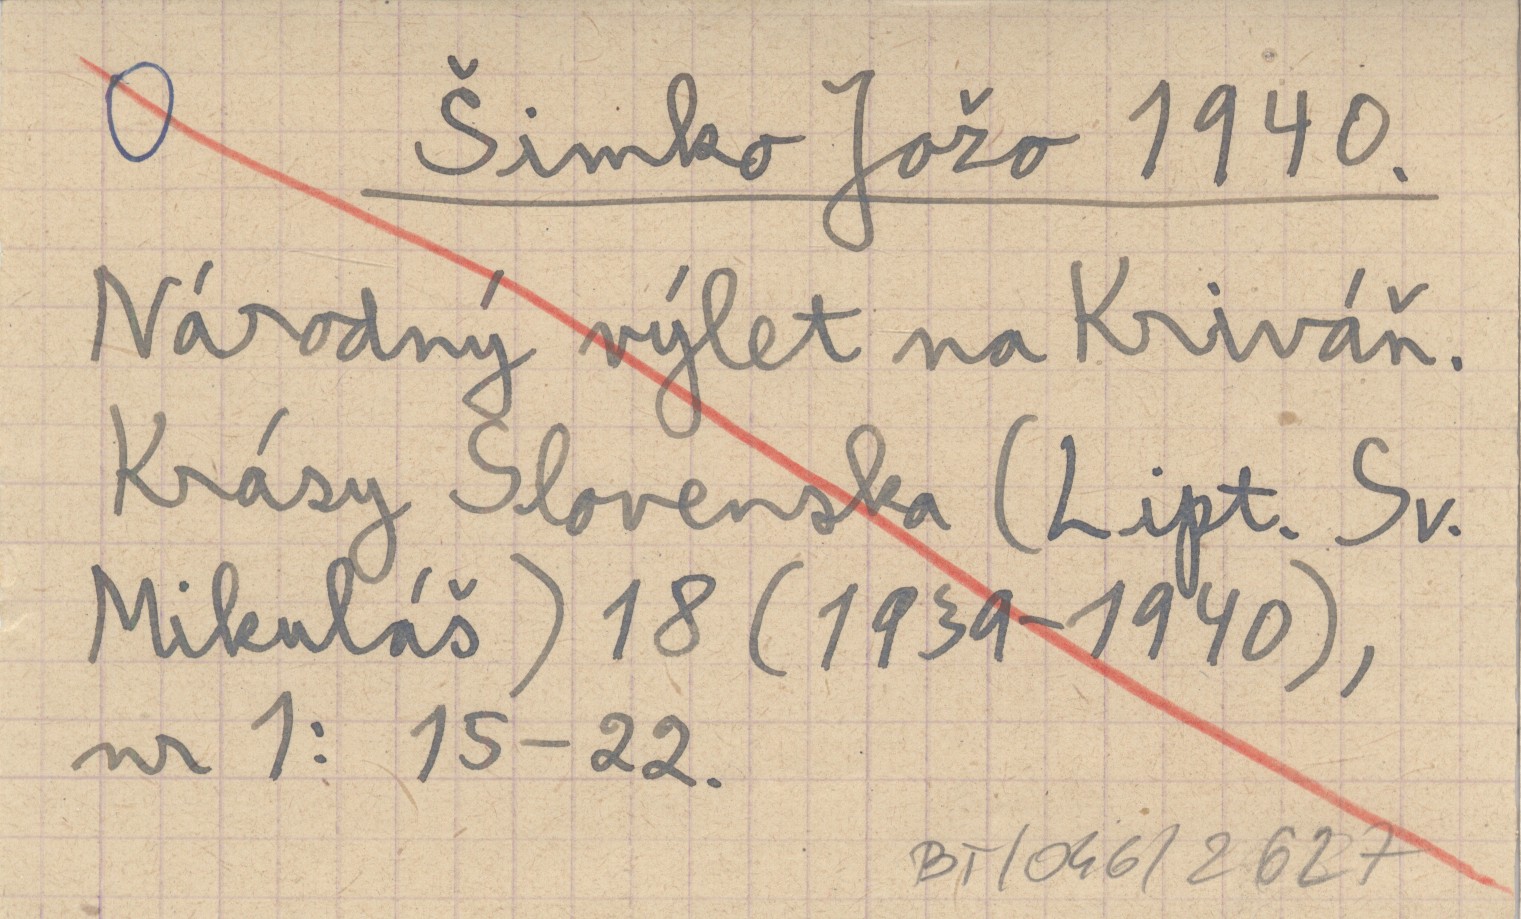 0 Šimko Jožo 1940.
Národný výlet na Kriváň.
Krásy Slovenska (Lipt. Sv.
Mikuláš) 18 (1939-1940),
nr 1: 15-22.
BT/046/2627